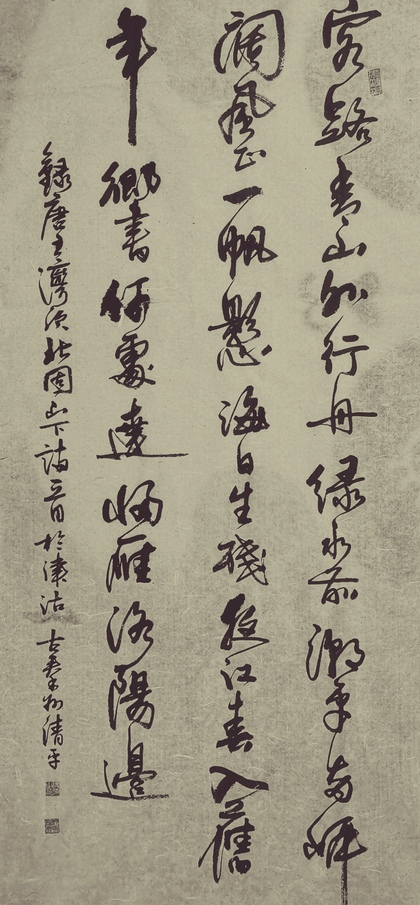 客路青山外行舟绿水前潮平两岸
阔风正一帆悬海日生残夜江春入旧
年乡书何处达归雁洛阳边
录唐王湾次北固山下诗 于津沽 清平